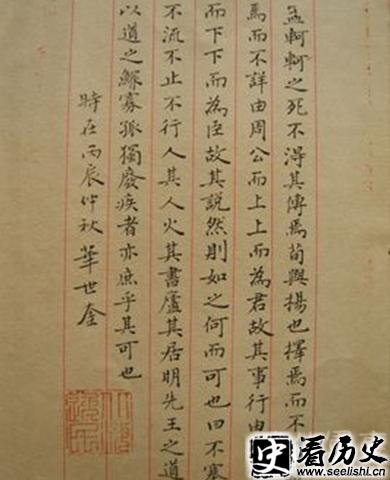 孟軻軻之死不得其傳焉荀與揚也擇焉而不
焉而不詳由周公而上上而為君故其事行由
而下下而為臣故其説然則如之何而可也曰不塞
不流不止不行人其人火其書廬其居明先王之道
以道之鰥寡孤獨廢疾者亦庶乎其可也
時在丙辰仲秋華世奎
史看历史
www.seelishi.cn